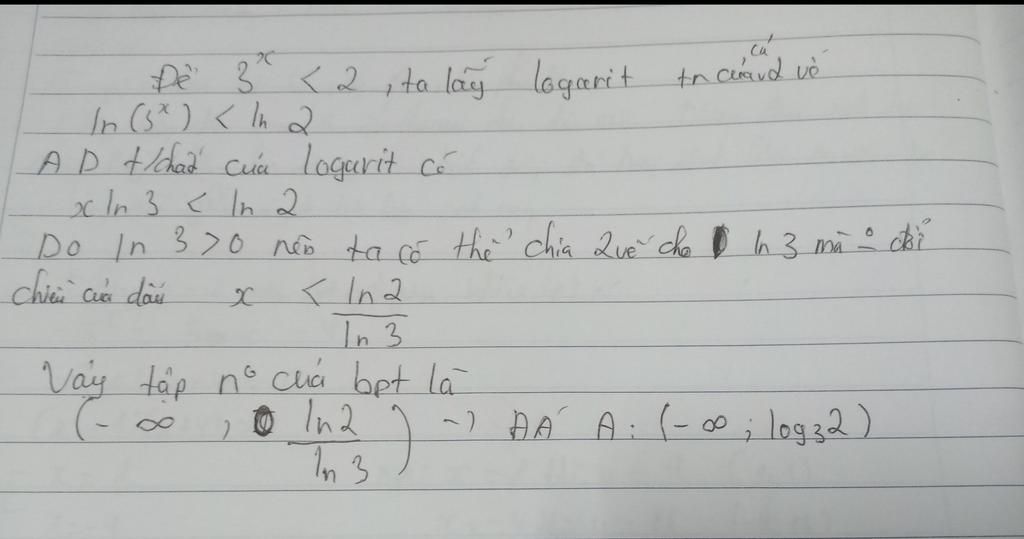 Để 3^x < 2, ta lấy logarit tn của cả 2 vế
ln(3^x) < ln 2
AD t/chất của logarit có
x ln 3 < ln 2
Do ln 3 > 0 nên ta có thể chia 2 vế cho ln 3 mà đổi
chiều của dấu x < ln2/ln 3
Vậy tập n° của bpt là
(-∞, ln2/ln 3) → ĐA A: (-∞; log₃2)